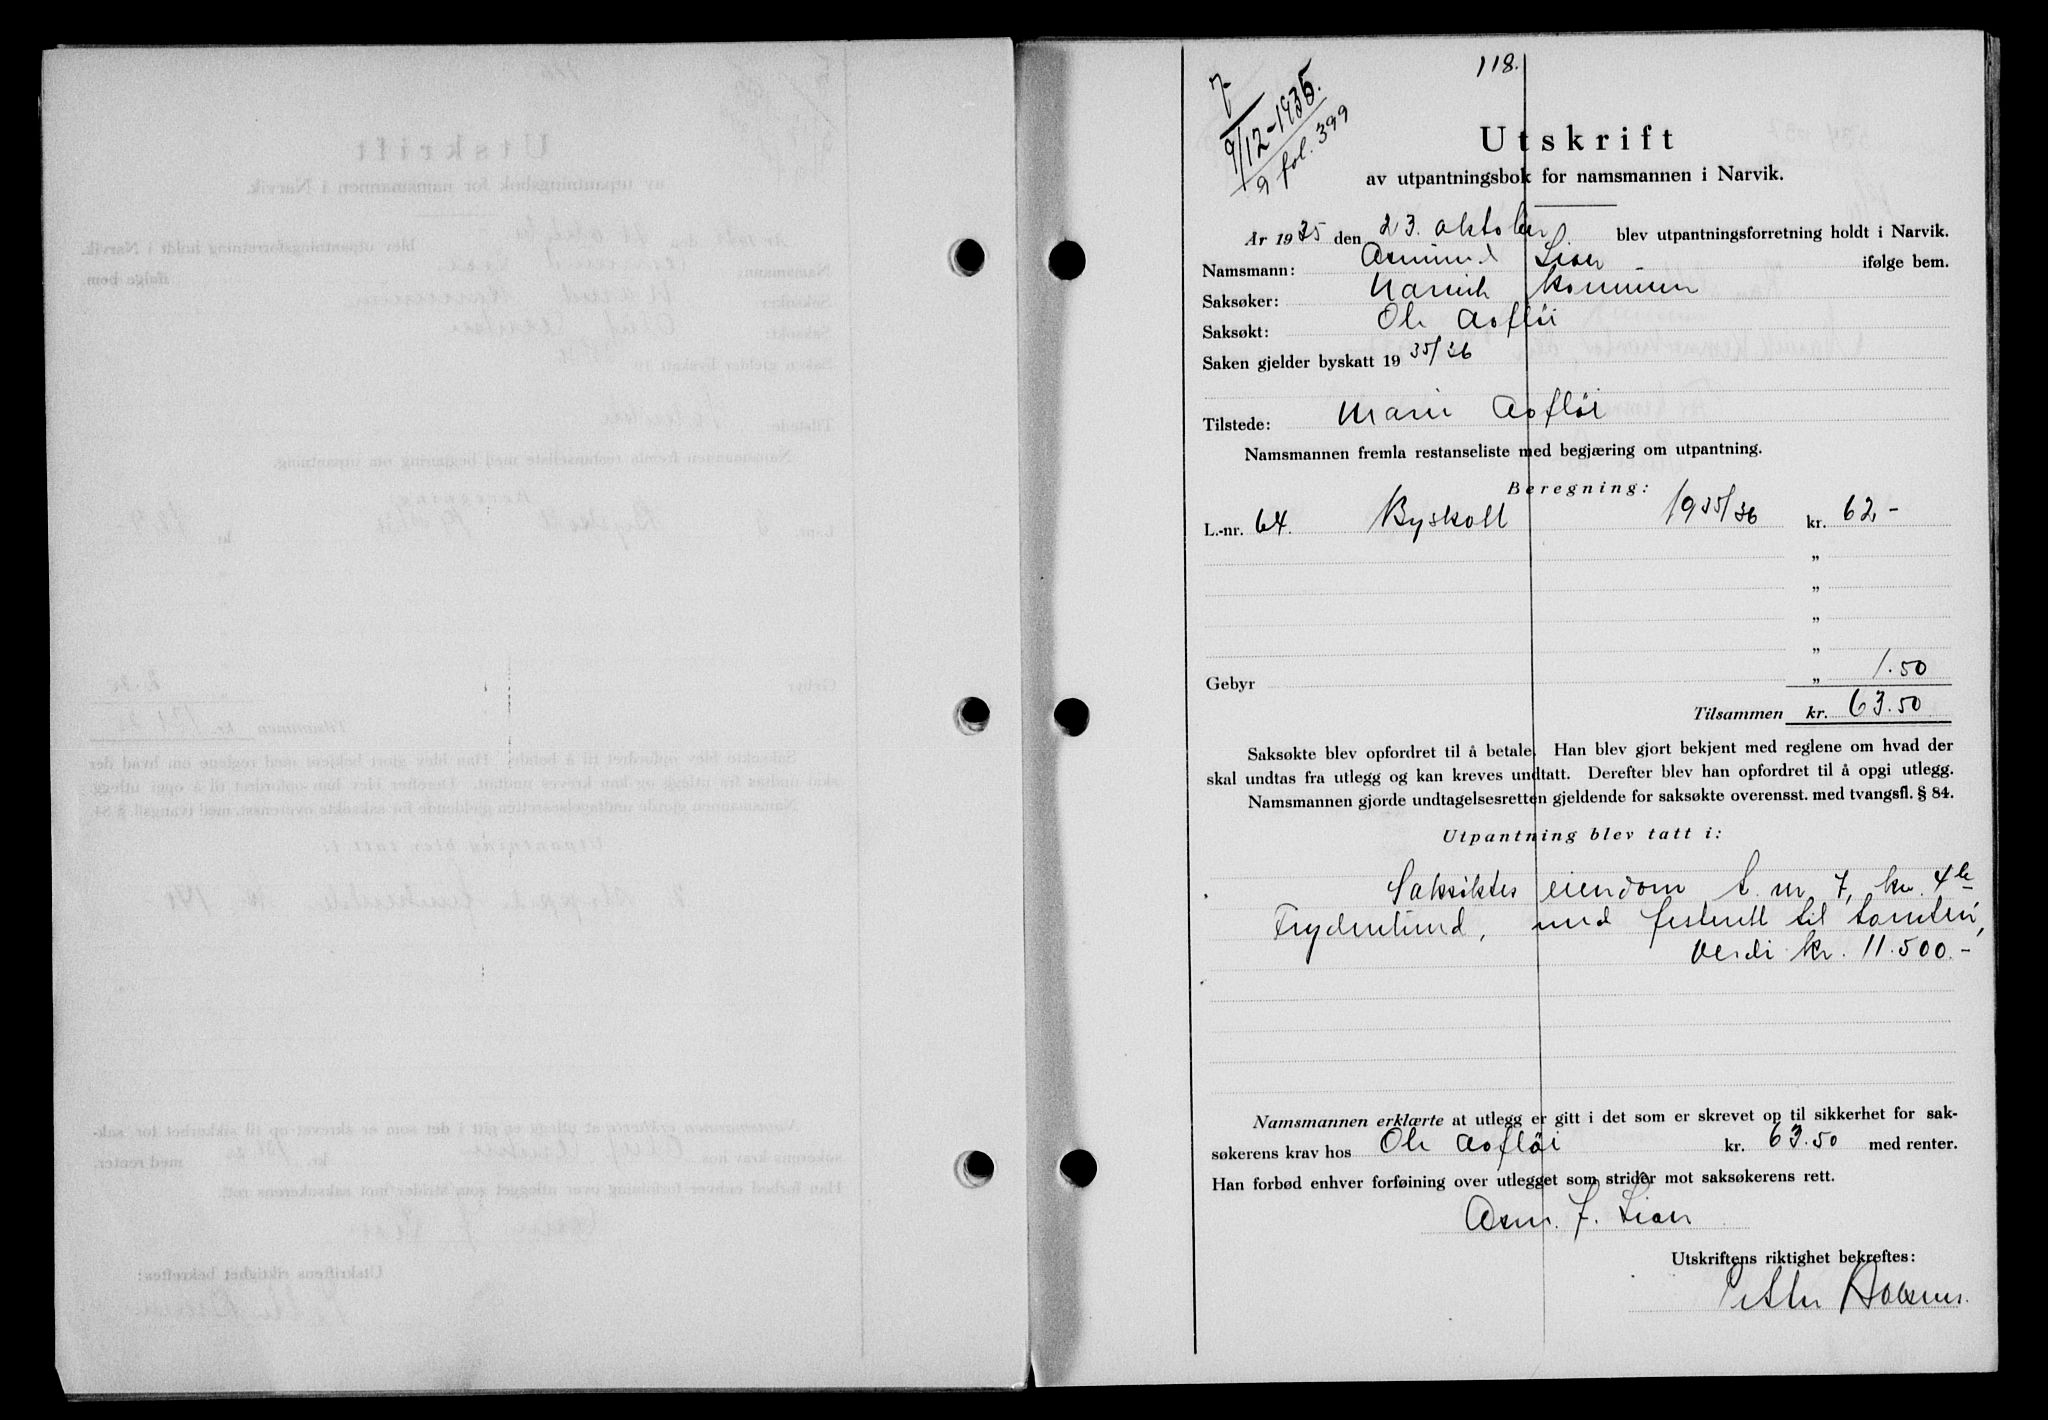 118.
7
9/12-1935.
9 fol. 399
Utskrift
av utpantningsbok for namsmannen i Narvik.
År 1935 den 23. oktober blev utpantningsforretning holdt i Narvik.
Namsmann: Asmund Lien ifølge bem.
Saksøker: Narvik kommune
Saksøkt: Ole Aofløi
Saken gjelder byskatt 1935/36
Tilstede: Marie Aofløi
Namsmannen fremla restanseliste med begjæring om utpantning.
Beregning:
L.-nr. 64. Byskatt 1935/36 kr. 62,-
„
„
„
„
Gebyr „ 1.50
Tilsammen kr. 63.50
Saksøkte blev opfordret til å betale. Han blev gjort bekjent med reglene om hvad der
skal undtas fra utlegg og kan kreves undtatt. Derefter blev han opfordret til å opgi utlegg.
Namsmannen gjorde undtagelsesretten gjeldende for saksøkte overensst. med tvangsfl. § 84.
Utpantning blev tatt i:
Saksøktes eiendom t. nr. 7, kv. 4 le
Frydenlund, med festerett til tomten,
Verdi kr. 11.500.-
Namsmannen erklærte at utlegg er gitt i det som er skrevet op til sikkerhet for sak-
søkerens krav hos Ole Aofløi kr. 63.50 med renter.
Han forbød enhver forføining over utlegget som strider mot saksøkerens rett.
Asm. J. Lien
Utskriftens riktighet bekreftes: